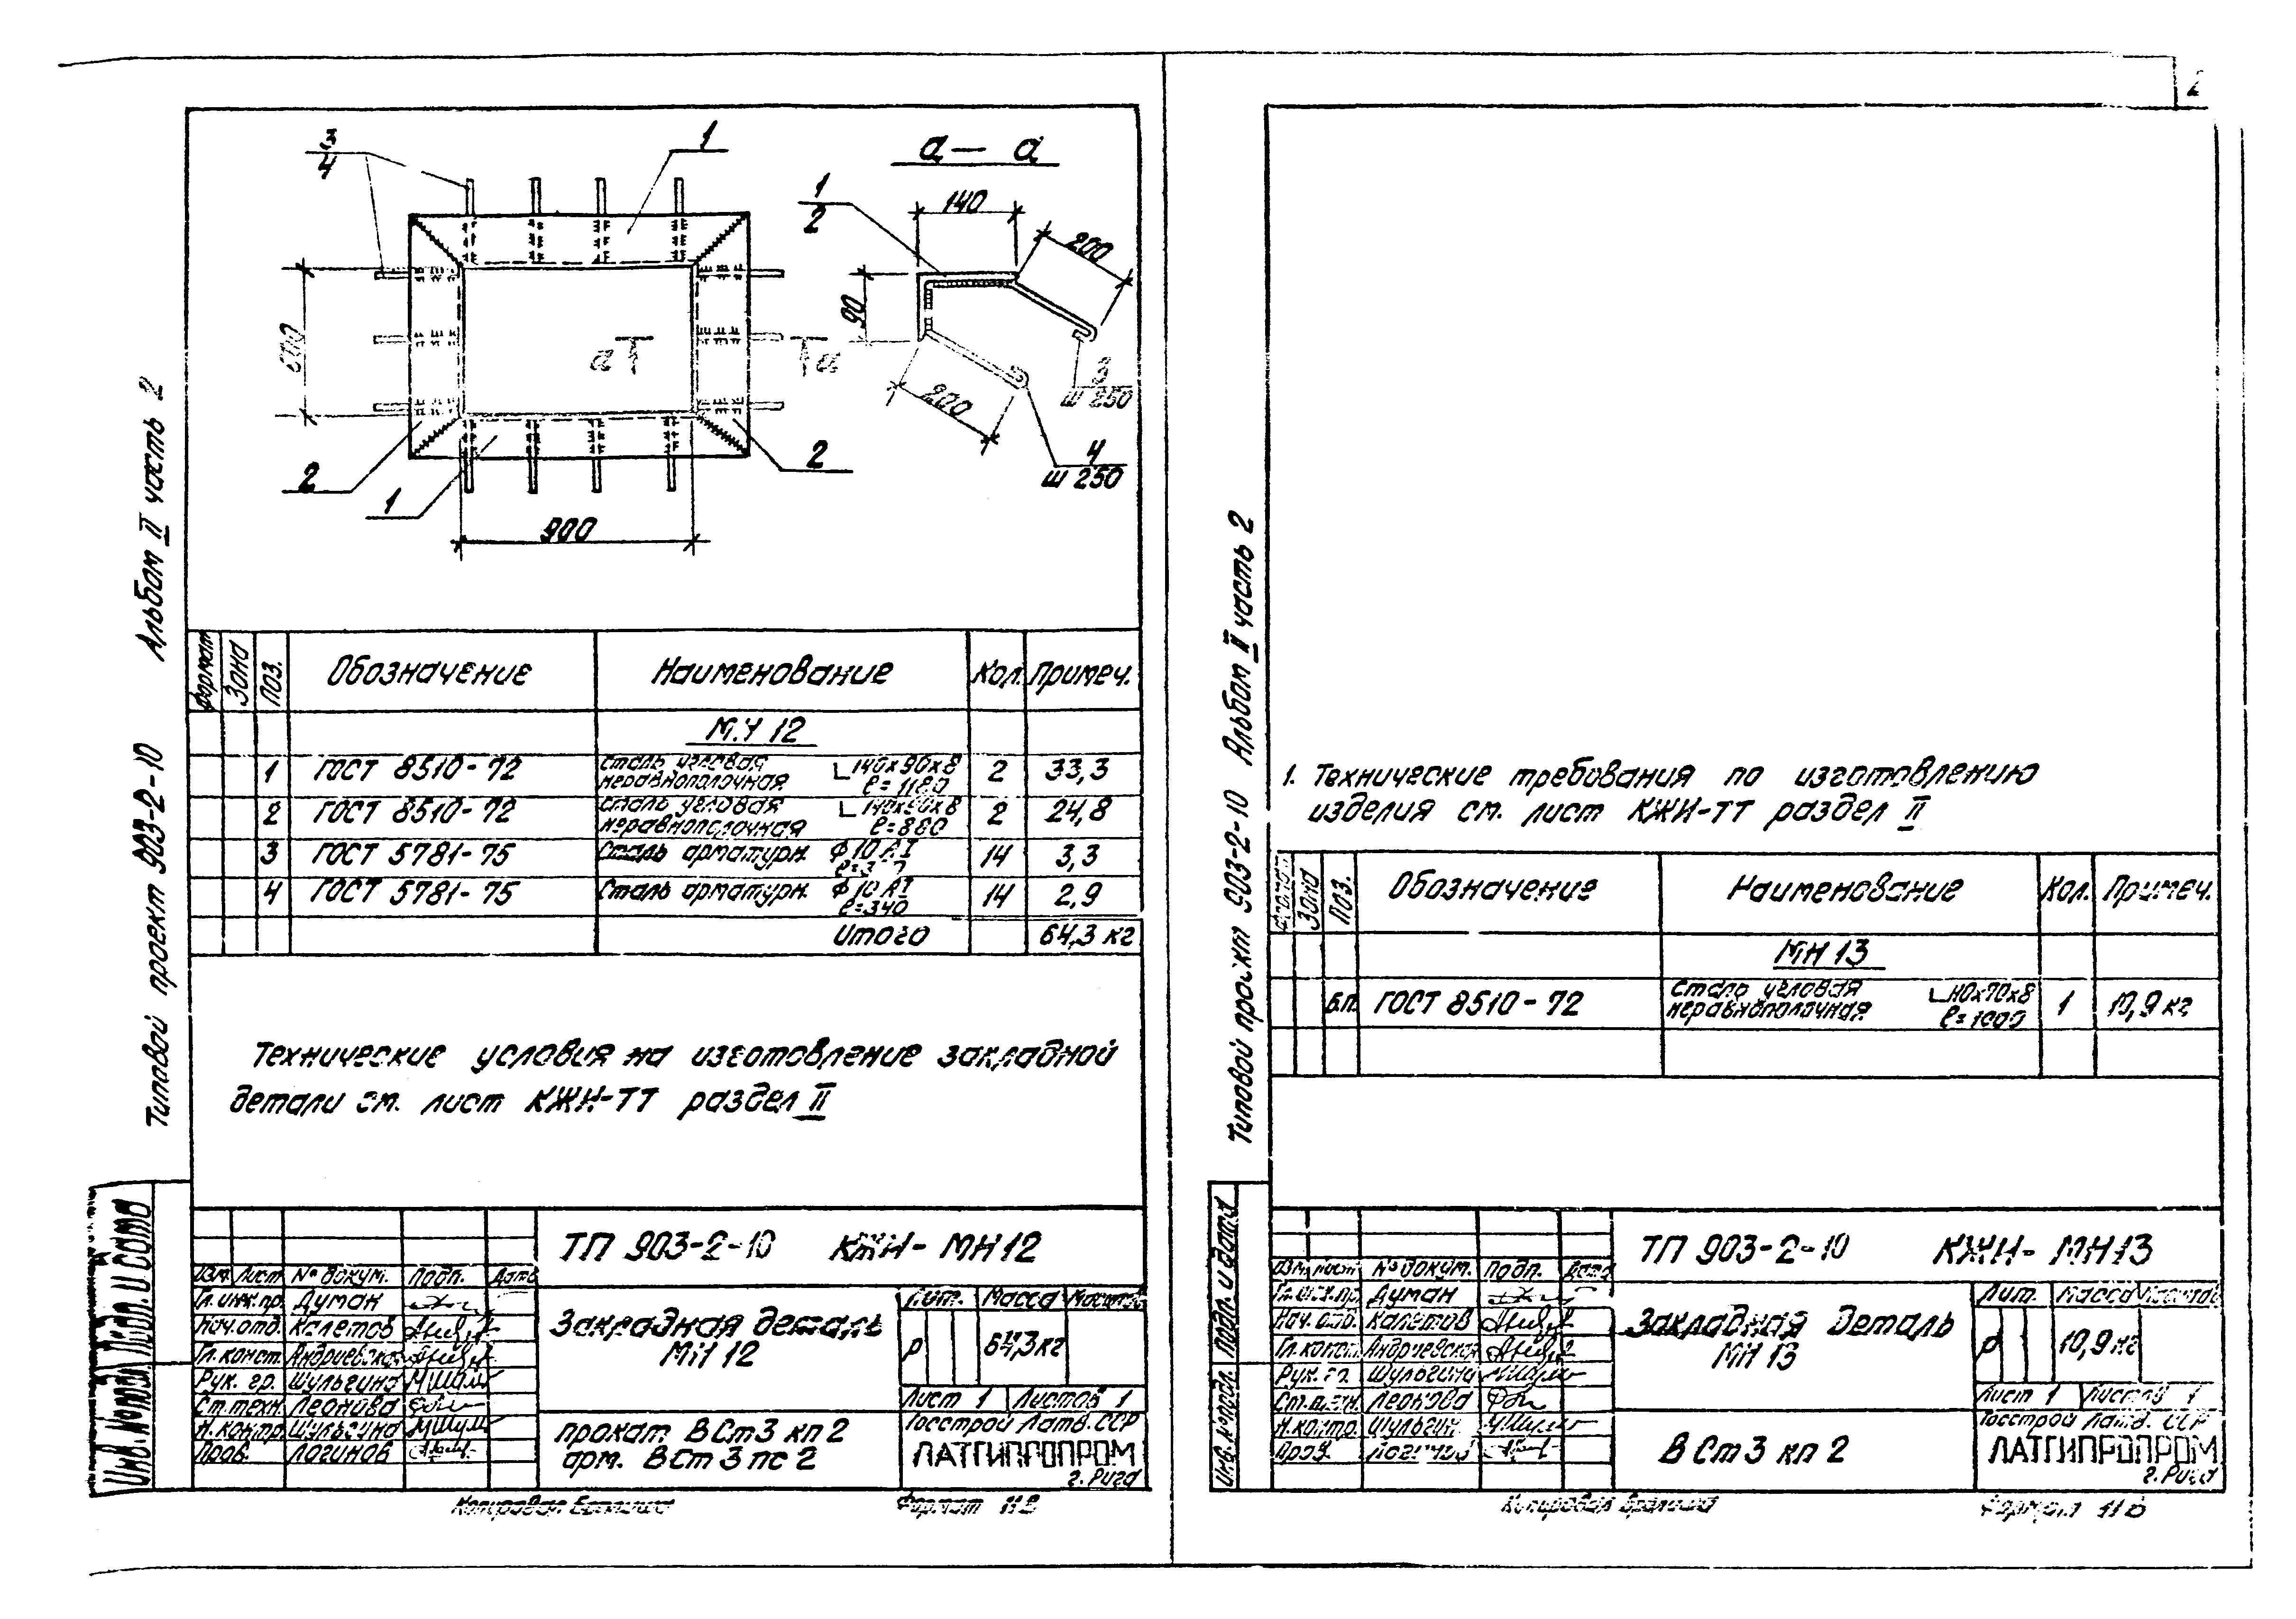 2
Альбом II часть 2
Типовой проект 903-2-10
3
4
1
600
2
1
900
2
а
а
а — а
1
2
140
200
90
200
3
ш 250
4
ш 250
Формат Зона Поз. Обозначение Наименование Кол. Примеч.
МН 12
1 ГОСТ 8510-72 Сталь угловая неравнополочная ∟140х90х8 ℓ=1180 2 33,3
2 ГОСТ 8510-72 Сталь угловая неравнополочная ∟140х90х8 ℓ=880 2 24,8
3 ГОСТ 5781-75 Сталь арматурн. ф10 АI 14 3,3
4 ГОСТ 5781-75 Сталь арматурн. ф10 АI ℓ=340 14 2,9
Итого 64,3 кг
Технические условия на изготовление закладной
детали см. лист КЖИ-ТТ раздел II
Инв. №подл. Подп. и дата
ТП 903-2-10 КЖИ-МН12
Изм. Лист № докум. Подп. Дата
Гл. инж. пр. Думан
Нач. отд. Калетов
Гл. конст. Андриевская
Рук. гр. Шульгина
Ст. техн. Леонова
Н. контр. Шульгина
Пров. Логинов
Закладная деталь
МН 12
Лит. Масса Масштаб
Р 64,3 кг
Лист 1 Листов 1
прокат ВСт3 кп2
арм. ВСт3 пс2
Госстрой Латв. ССР
ЛАТГИПРОПРОМ
г. Рига
Копировал
Формат 11В
Альбом II часть 2
Типовой проект 903-2-10
1. Технические требования по изготовлению
изделия см. лист КЖИ-ТТ раздел II
Формат Зона Поз. Обозначение Наименование Кол. Примеч.
МН 13
б.п. ГОСТ 8510-72 Сталь угловая неравнополочная ℓ=1000 1 10,9 кг
Инв. №подл. Подп. и дата
ТП 903-2-10 КЖИ-МН13
Изм. Лист № докум. Подп. Дата
Гл. инж. пр. Думан
Нач. отд. Калетов
Гл. конст. Андриевская
Рук. гр. Шульгина
Ст. техн. Леонова
Н. контр. Шульгина
Пров. Логинов
Закладная деталь
МН 13
Лит. Масса Масштаб
Р 10,9 кг
Лист 1 Листов 1
ВСт3 кп2
Госстрой Латв. ССР
ЛАТГИПРОПРОМ
г. Рига
Копировал
Формат 11В